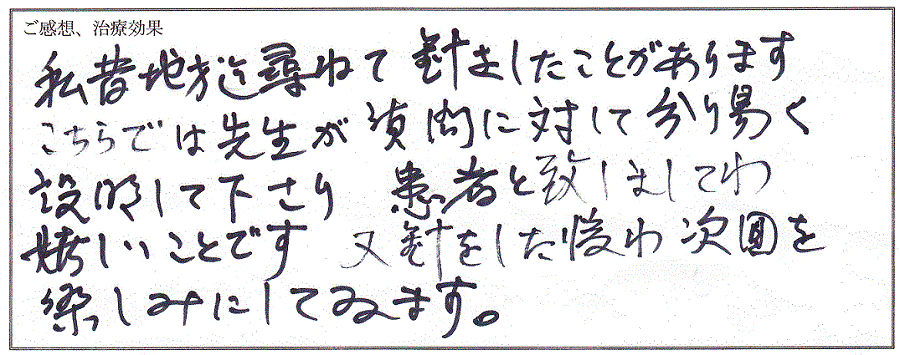 ご感想、治療効果
私昔地方迄尋ねて 針ましたことがあります
こちらでは先生が質問に対して分り易く
説明して下さり 患者と致しましてわ
嬉しいことです 又針をした後わ次回を
楽しみにしてゐます。